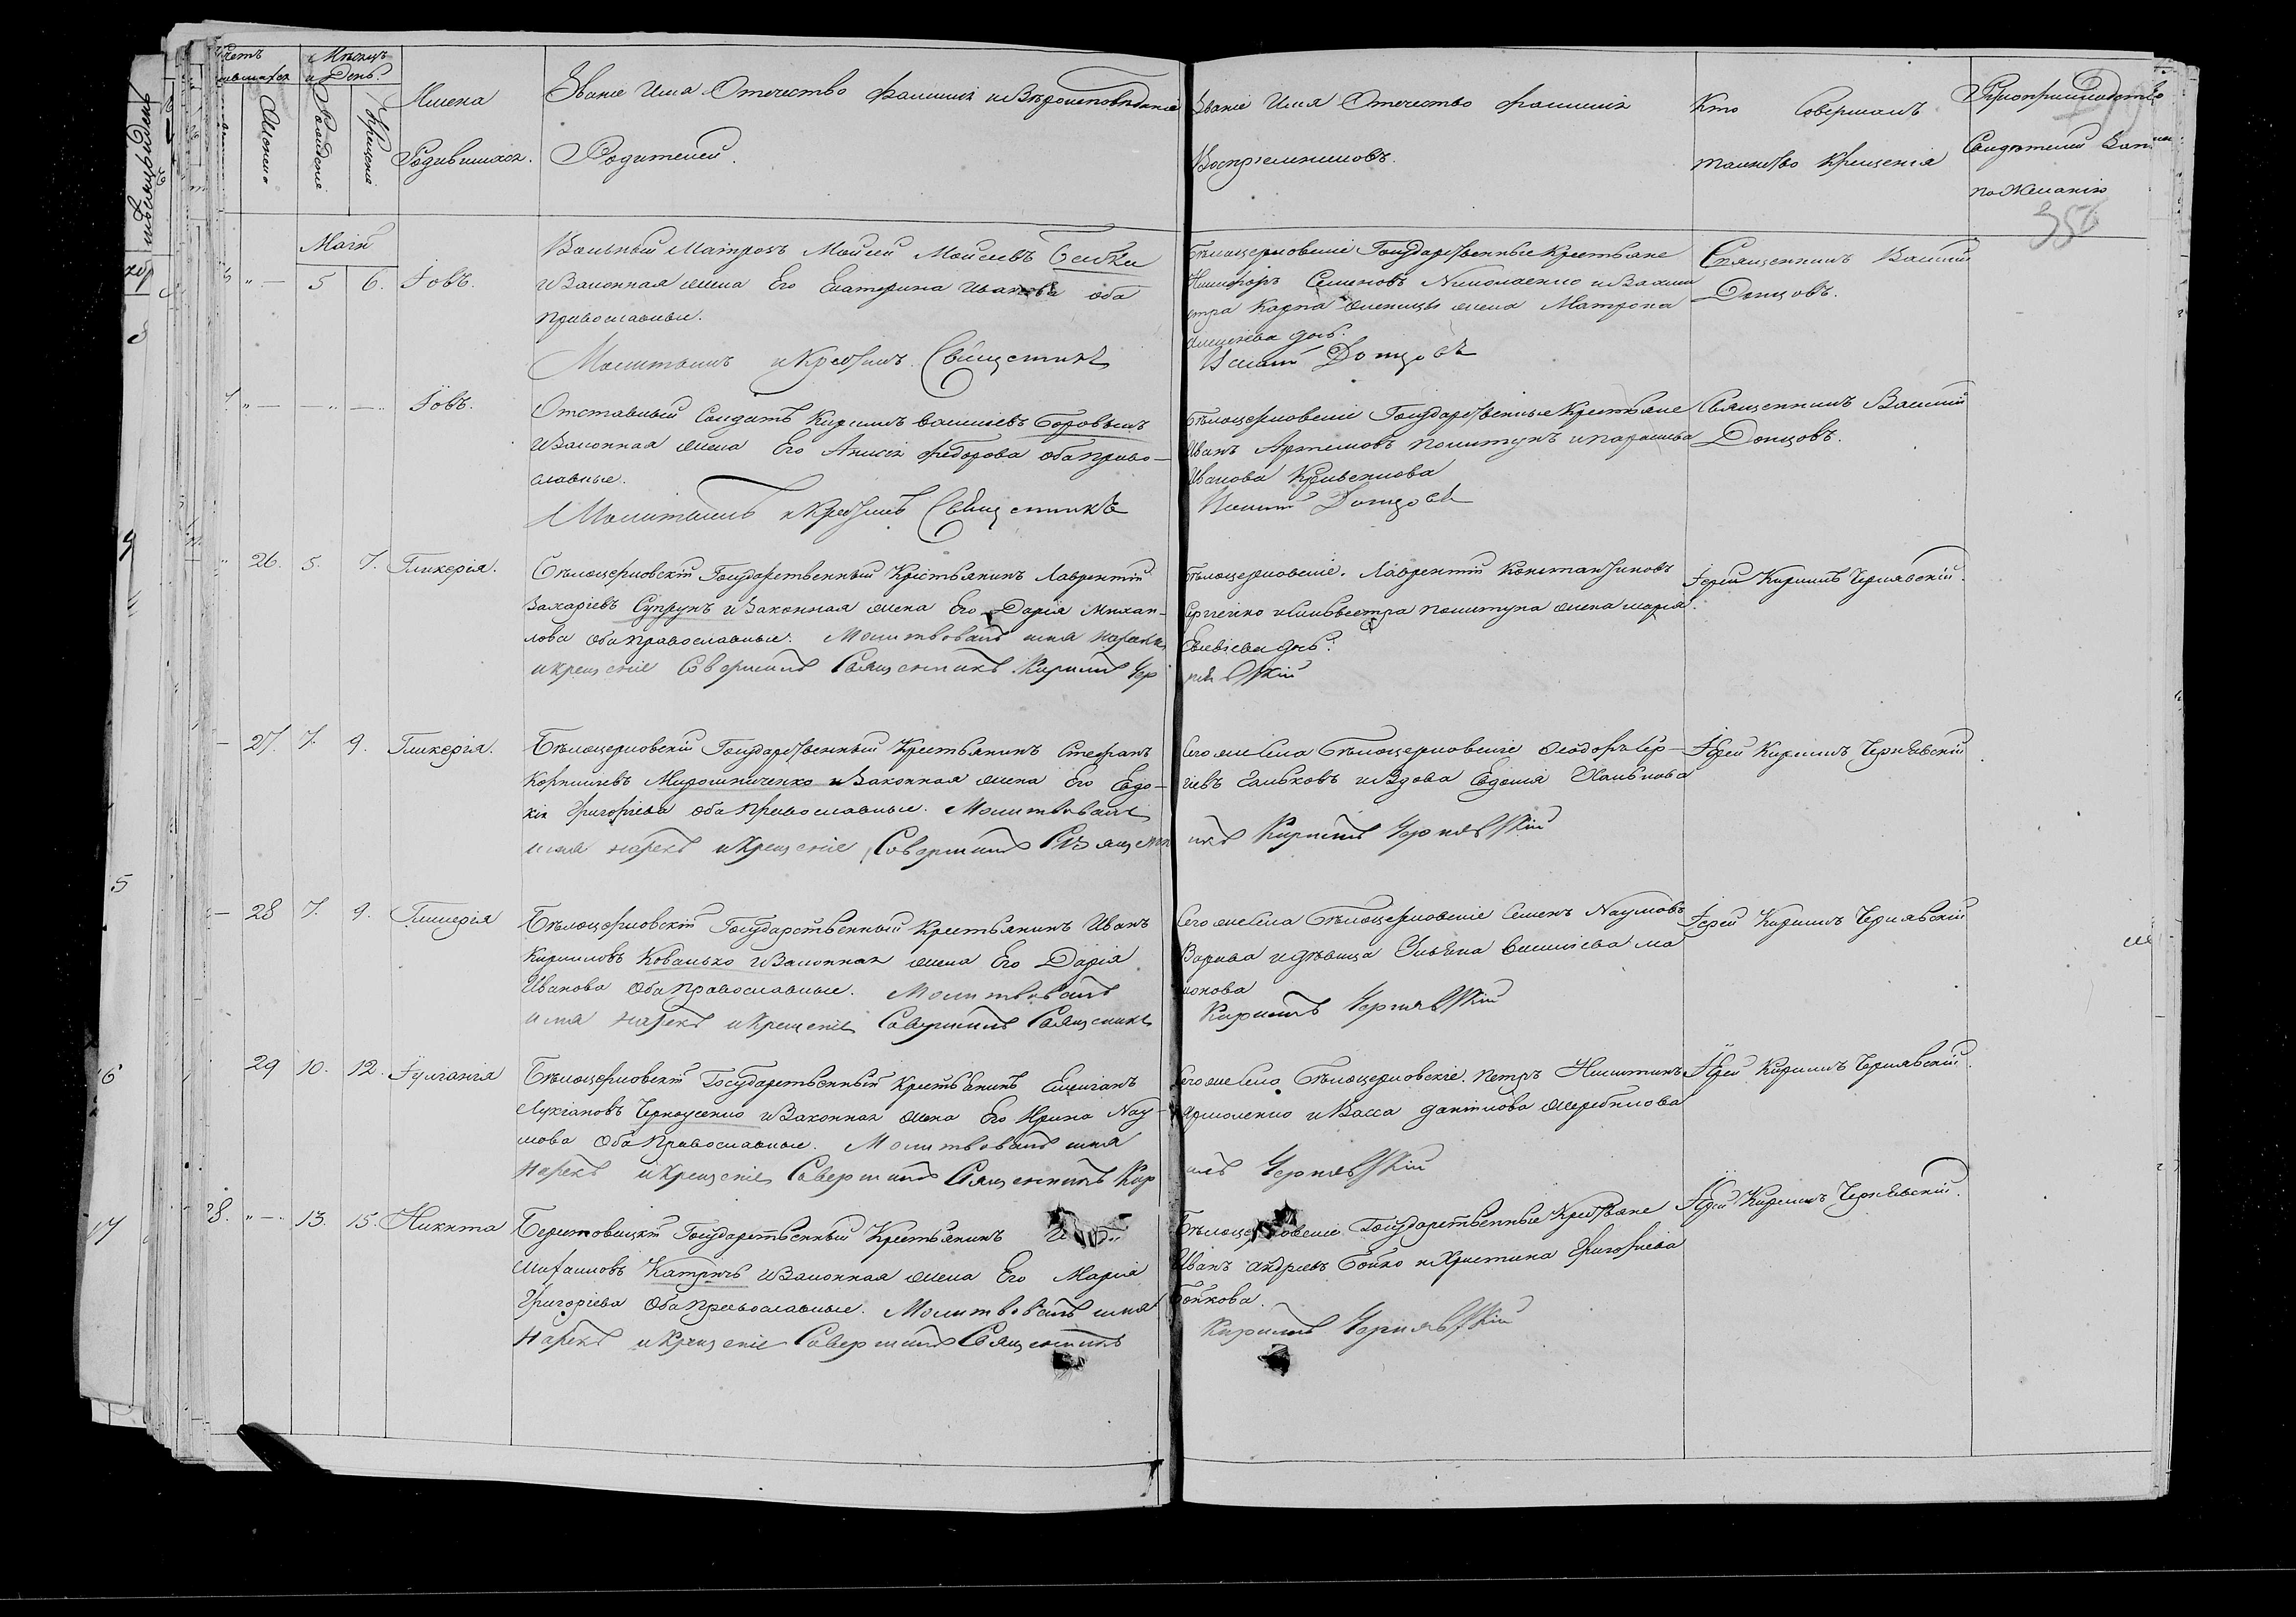 Мѣсяцъ
и День.
Женска
Рожденія
Крещенія
Имена
Родившихся.
Званіе Имя Отечество Фамилія и Вѣроисповѣданіе
Родителей.
Званіе Имя Отечество Фамилія
Воспріемниковъ.
Кто Совершалъ
таинство Крещенія
Рукоприкладство
Свидѣтелей
по Желанію
356
Маія
5 6. Іовъ.
Вольный Матрозъ Моисей Моисеевъ
и Законная жена Его Екатерина Иванова оба
православные.
Молитвилъ и Крестилъ Священникъ
Бѣлоцерковскіе Государственные Крестьяне
Никифоръ Семеновъ Николаенко и
Карпа жена Матрона
дочь.
Василій Донцовъ
Священникъ Василій
Донцовъ.
Іовъ.
Отставный Солдатъ Кирилъ Василіевъ Боровыкъ
и Законная жена Его Анисія Федорова оба право-
славные.
Молитвилъ и Крестилъ Священникъ
Бѣлоцерковскіе Государственные Крестьяне
Иванъ Артемовъ Политунъ и Параскева
Иванова Кривенкова
Василій Донцовъ
Священникъ Василій
Донцовъ.
26. 5. 7. Гликерія.
Бѣлоцерковскій Государственный Крестьянинъ Лаврентій
Захаріевъ Супрунъ и Законная жена Его Дарія Михаи-
лова оба православные. Молитвовалъ имя нареклъ
и крещеніе Совершилъ Священникъ Кирилъ Чер
Бѣлоцерковскіе. Лаврентій Константиновъ
Сергіенко и Сильвестра Политуна жена Марія
дочь.
нявскій
Іерей Кирилъ Чернявскій.
27. 7. 9. Гликерія.
Бѣлоцерковскій Государственный Крестьянинъ Стефанъ
Корниліевъ Мирошниченко и Законная жена Его Евдо-
кія Григоріева оба православные. Молитвовалъ
имя нарекъ и Крещеніе Совершилъ Священ
Сего же Села Бѣлоцерковскіе Феодоръ Сер-
гіевъ Гальковъ и Вдова Евдокія Халькова
никъ Кирилъ Чернявскій
Іерей Кирилъ Чернявскій
28 7. 9. Гликерія
Бѣлоцерковскій Государственный Крестьянинъ Иванъ
Кириловъ Ковалько и Законная жена Его Дарія
Иванова оба православные. Молитвовалъ
имя нарекъ и Крещеніе Совершилъ Священникъ
Сего же Села Бѣлоцерковскіе Семенъ Наумовъ
Варава и дѣвица Ульяна Василіева
Кирилъ Чернявскій
Іерей Кирилъ Чернявскій
29 10. 12. Іуліанія
Бѣлоцерковскій Государственный Крестьянинъ Емиліанъ
Лукіановъ Черноусенко и Законная жена Его Ирина Нау-
мова оба православные. Молитвовалъ имя
нарекъ и Крещеніе Совершилъ Священникъ Кир
Сего же Села Бѣлоцерковскіе. Петръ Никитинъ
Ярмоленко и Васса Даніилова Жеребилова
илъ Чернявскій
Іерей Кирилъ Чернявскій.
28. 13. 15. Никита
Государственный Крестьянинъ
Михаиловъ Катричъ и Законная жена Его Марія
Григоріева оба православные. Молитвовалъ имя
нарекъ и Крещеніе Совершилъ Священникъ
Бѣлоцерковскіе Государственные Крестьяне
Иванъ Андреевъ Бойко и Христина Григоріева
Бойкова.
Кирилъ Чернявскій
Іерей Кирилъ Чернявскій.